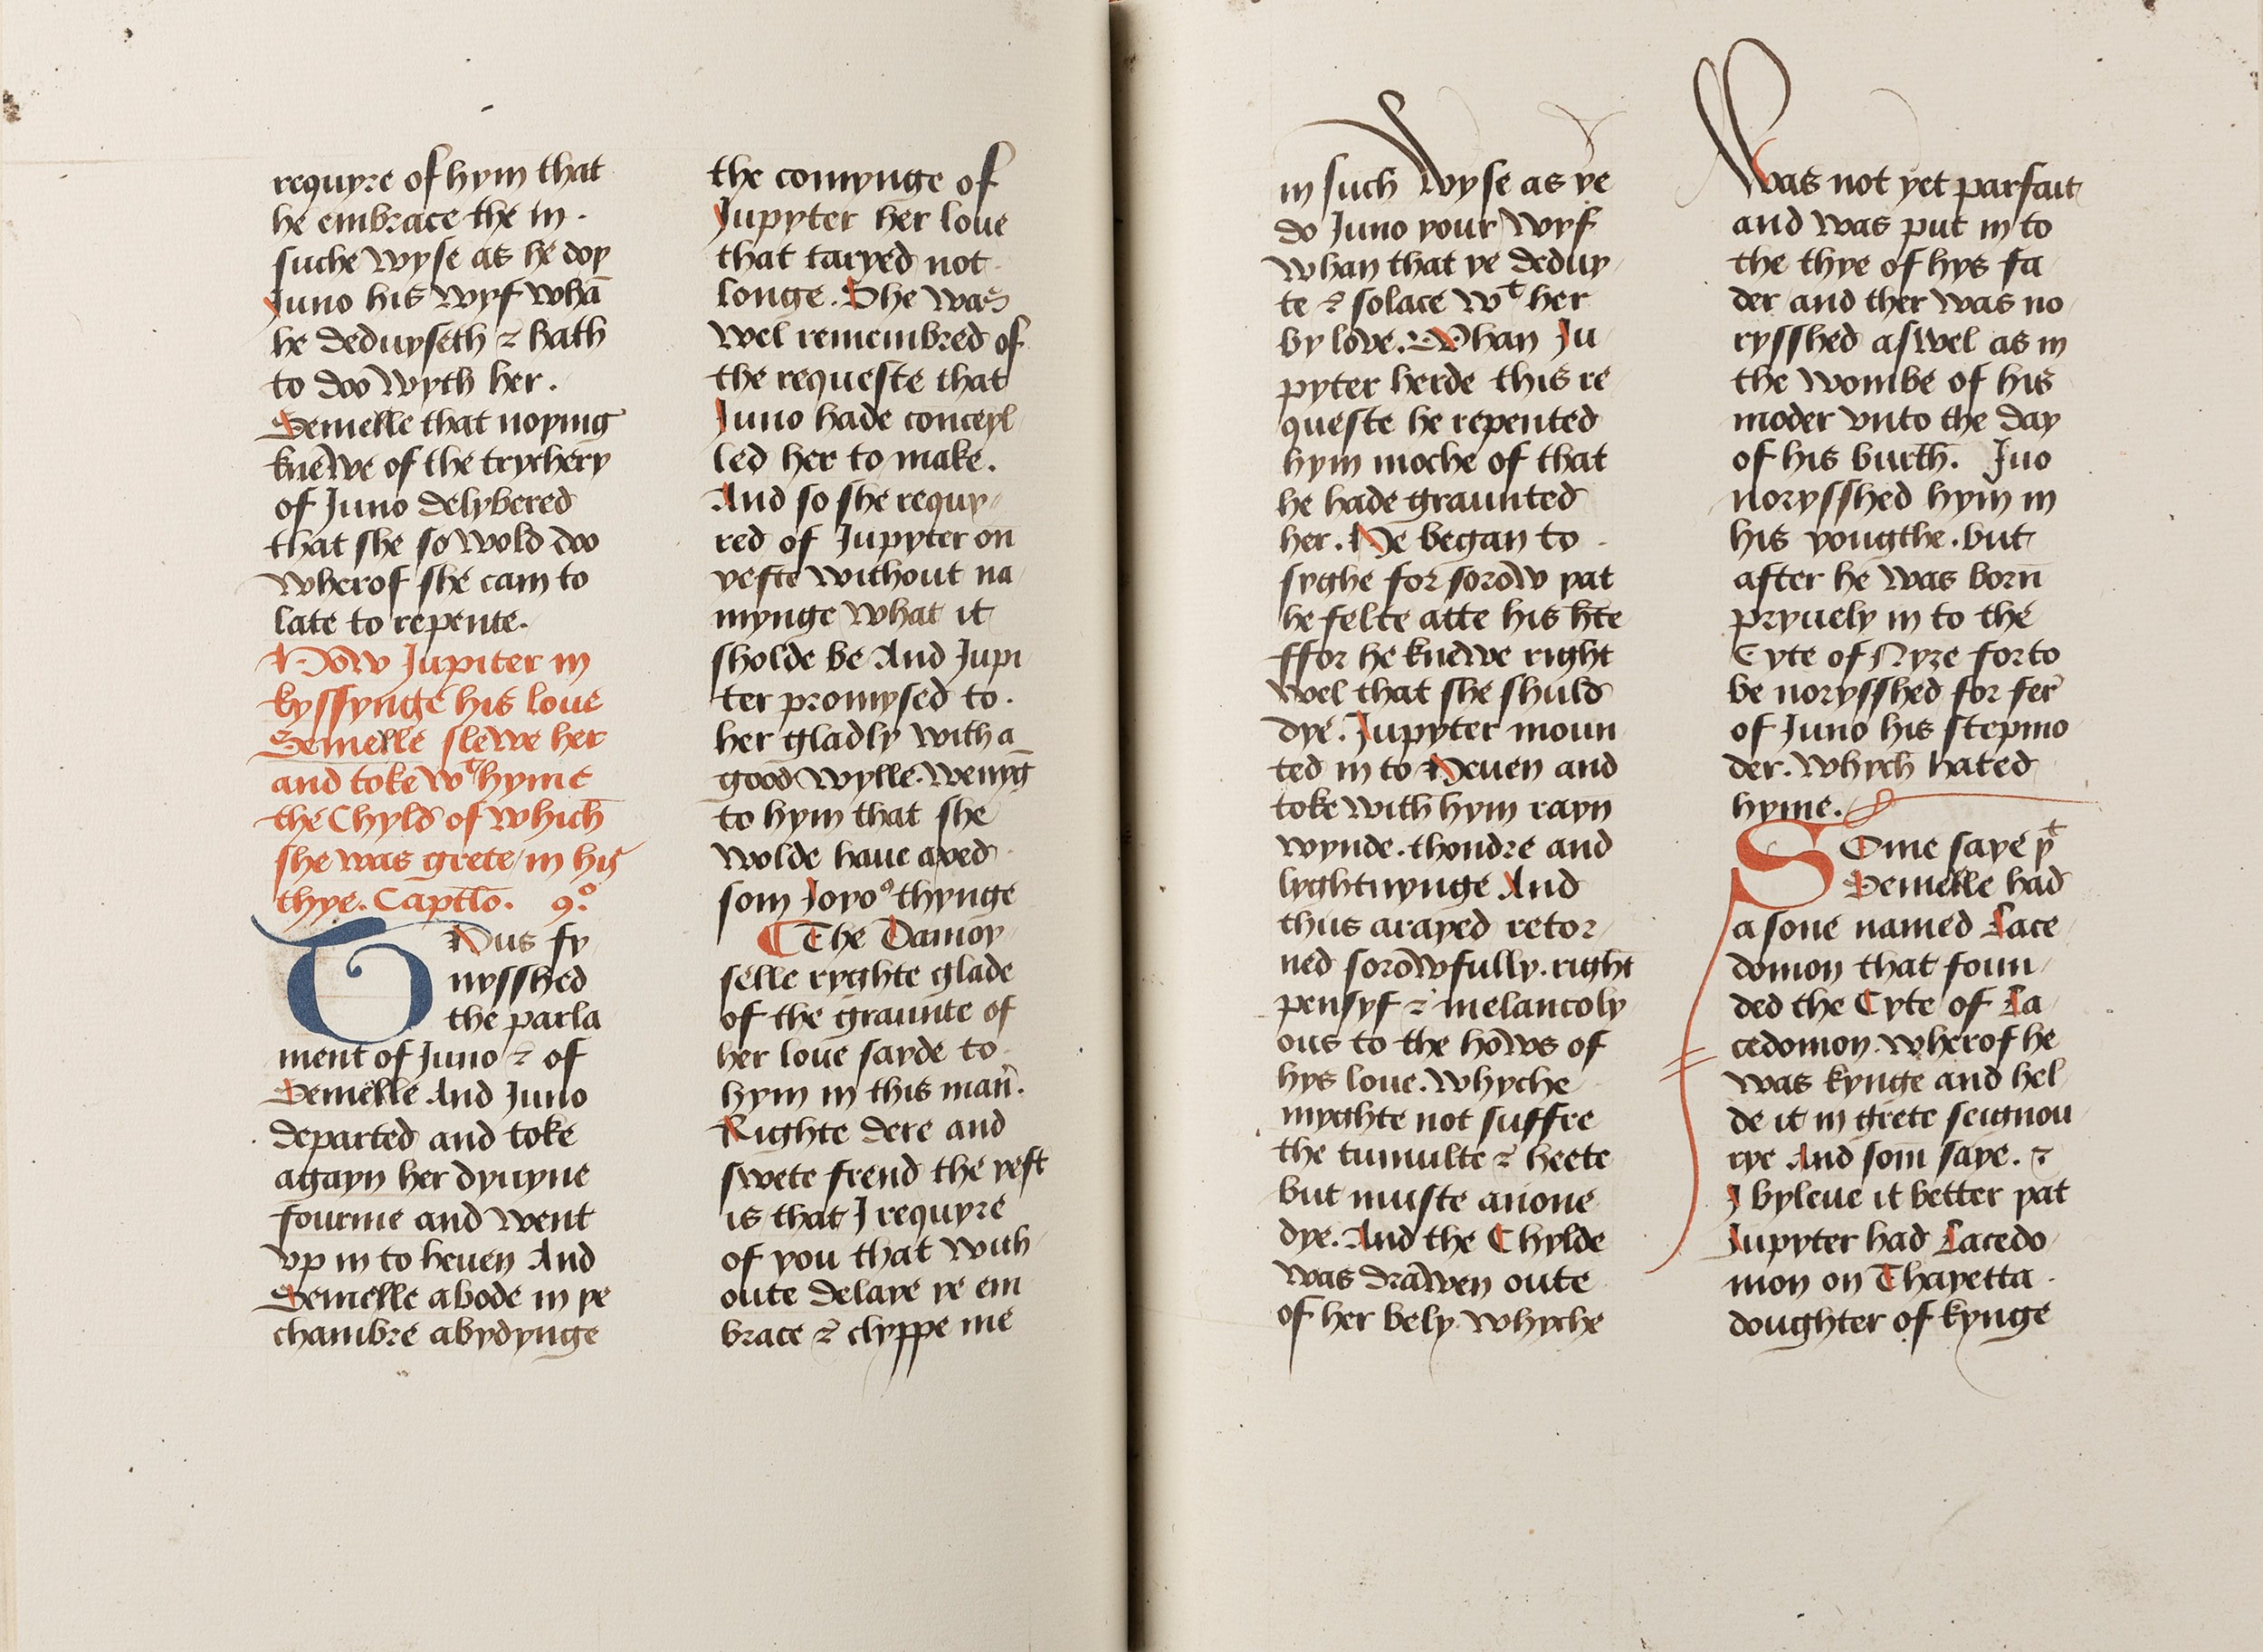 requyre of hym that
he embrace the in.
suche wyse as he doþ
Juno his wyf whā
he deduyseth ⁊ hath
to doo wyth her.
Semelle that noþing
knewe of the trychery
of Juno delybered
that she so wold doo
wherof she cam to
late to repente.
How Jupiter in
kyssynge his loue
Semelle slewe her
and toke wᵗ hyme
the Chyld of which
she was grete in his
thye. Captl̄o. 9.º
THus fy
nysshed
the parla
ment of Juno ⁊ of
Semelle And Juno
departed and toke
agayn her dyuyne
fourme and went
vp in to heuen And
Semelle abode in þe
chambre abydynge
the comynge of
Jupyter her loue
that taryed not
longe. She was
wel remembred of
the requeste that
Juno hade conceyl
led her to make.
And so she requy
red of Jupyter on
yefte without na
mynge what it
sholde be And Jupi
ter promysed to.
her gladly with a
good wylle. wenyḡ
to hym that she
wolde haue axed
som Joyoꝰ thynge
¶ The Damoy
selle ryghte glade
of the graunte of
her loue sayde to
hym in this mañ.
Righte dere and
swete frend the yeft
is that I requyre
of you that with
oute delaye ye em
brace ⁊ clyppe me
in such wyse as ye
do Juno your wyf
whan that ye deduy
te ⁊ solace wᵗ her
by love. Whan Ju
pyter herde this re
queste he repented
hym moche of that
he hade graunted
her. He began to
syghe for sorow þat
he felte atte his hte
ffor he knewe right
wel that she shuld
dye. Jupyter moun
ted in to Heuen and
toke with hym rayn
wynde. thondre and
lyghtnynge And
thus arayed retor
ned sorowfully. right
pensyf ⁊ melancoly
ous to the hows of
hys loue. whyche
myghte not suffre
the tumulte ⁊ heete
but muste anone
dye. And the Chylde
was drawen oute
of her bely whyche
was not yet parfait
and was put in to
the thye of hys fa
der and ther was no
rysshed aswel as in
the wombe of his
moder vnto the day
of his burth. Juo
norysshed hym in
his yougthe. but
after he was born
pryuely in to the
Cyte of Nyze for to
be norysshed for fer
of Juno his stepmo
der. whych hated
hyme.
SOme saye þᵗ
Semelle had
a sone named Lace
domon that foun
ded the Cyte of La
cedomon. wherof he
was kynge and hel
de it in grete seignou
rye And som̄ saye. ⁊
I byleue it better þat
Jupyter had Lacedo
mon on Thayetta.
doughter of kynge